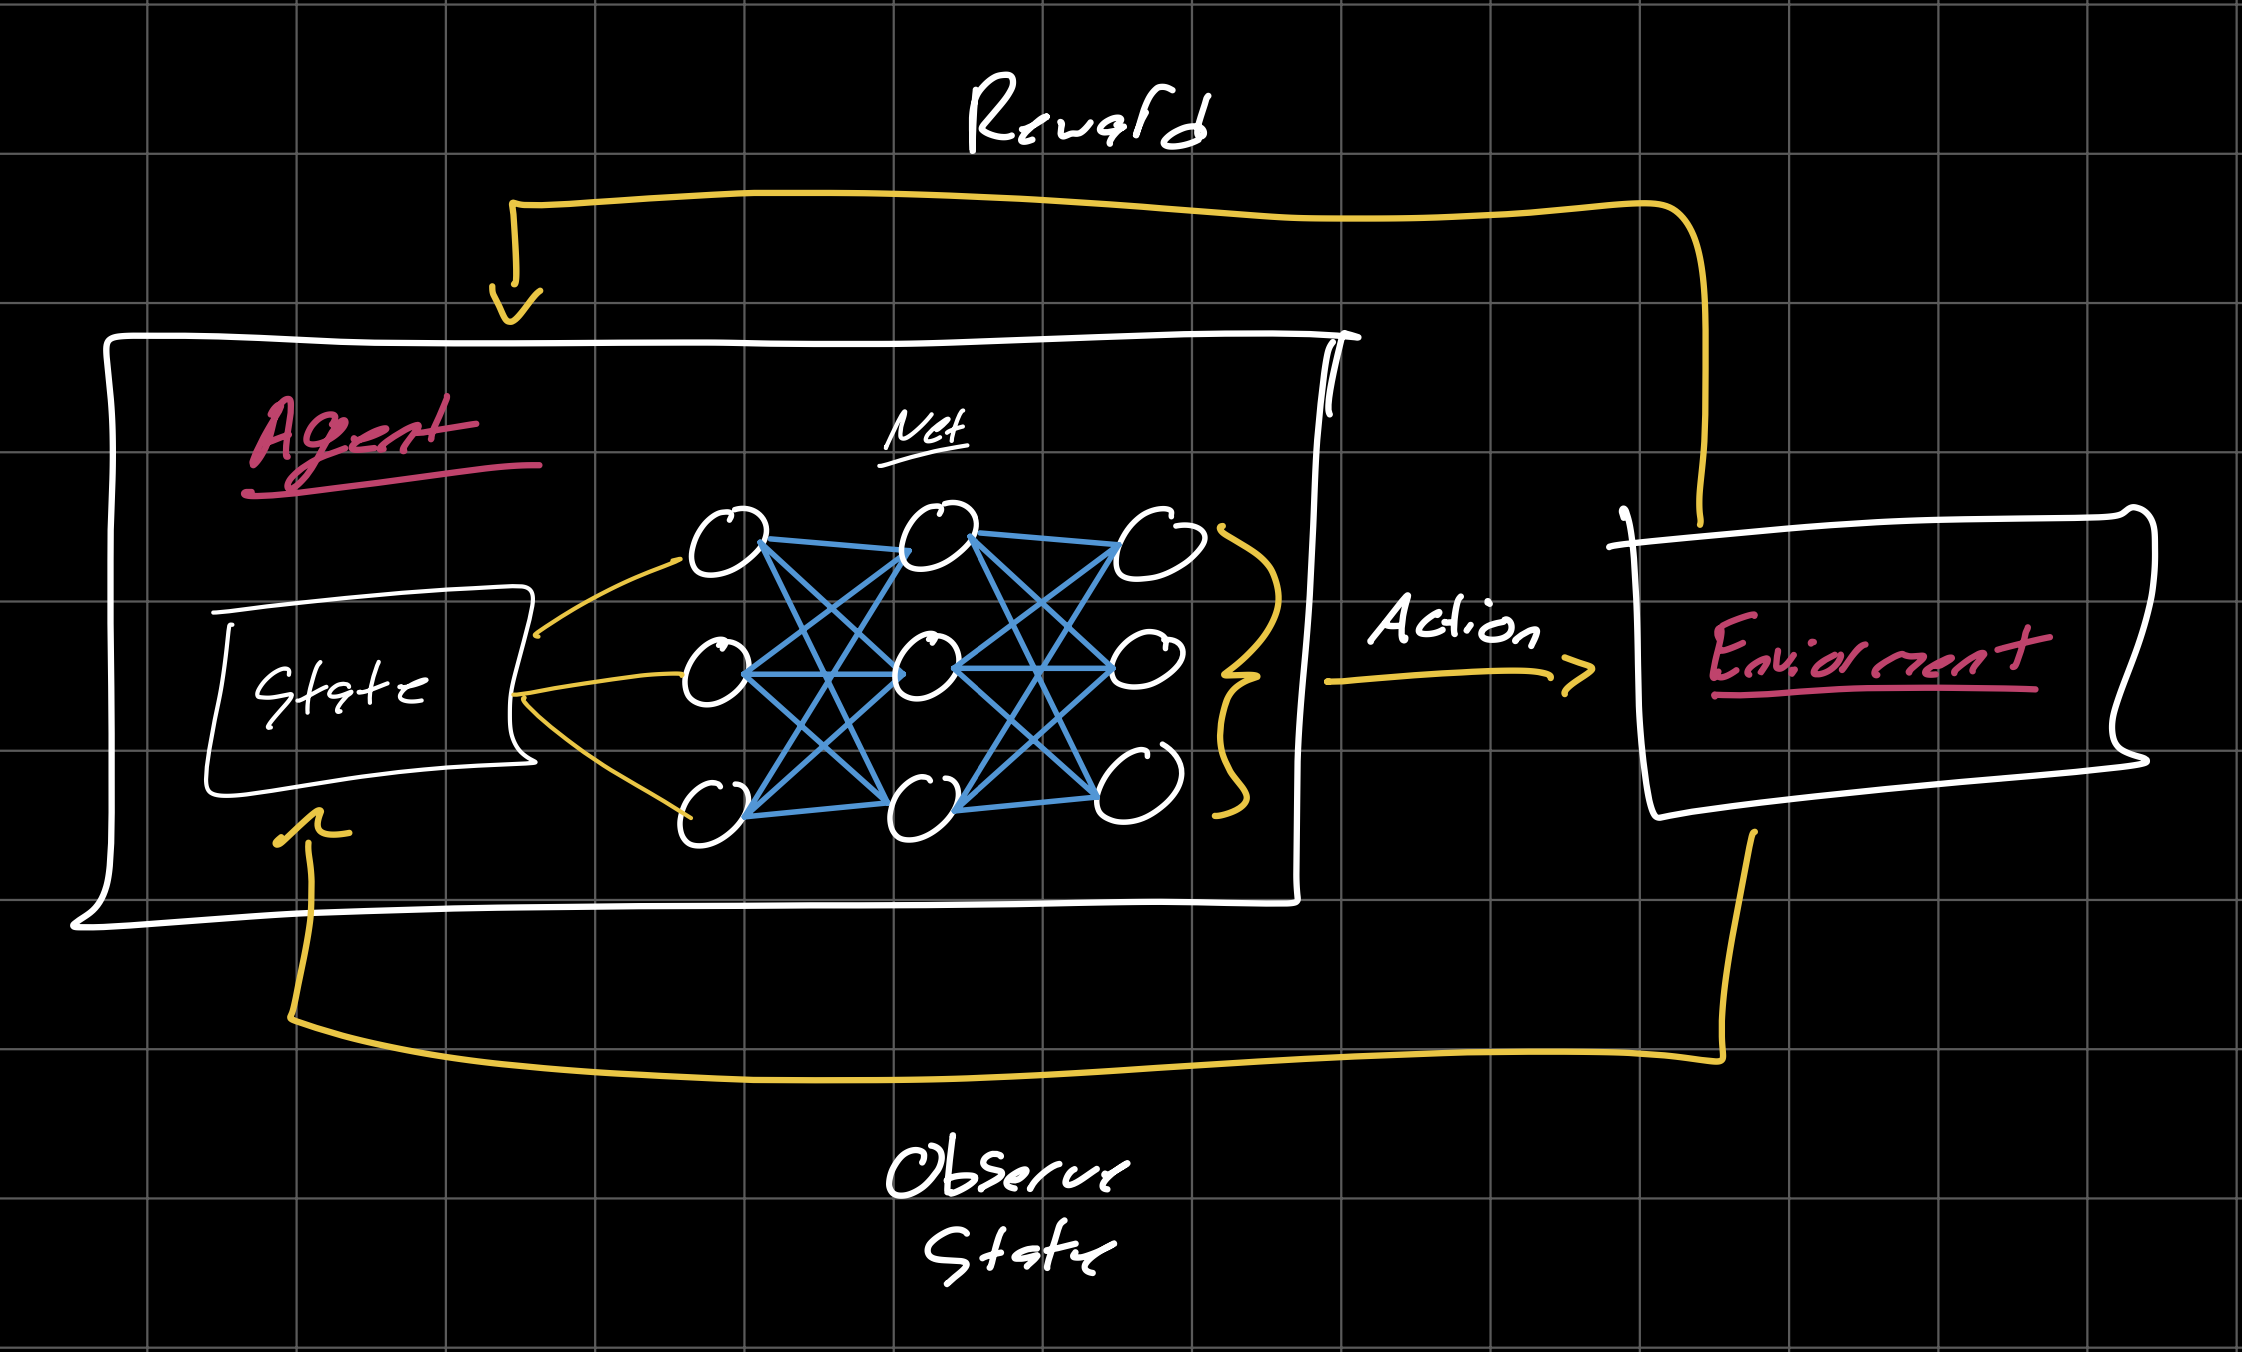 Reward
Agent
Net
State
Action
Enviorment
Observe
State